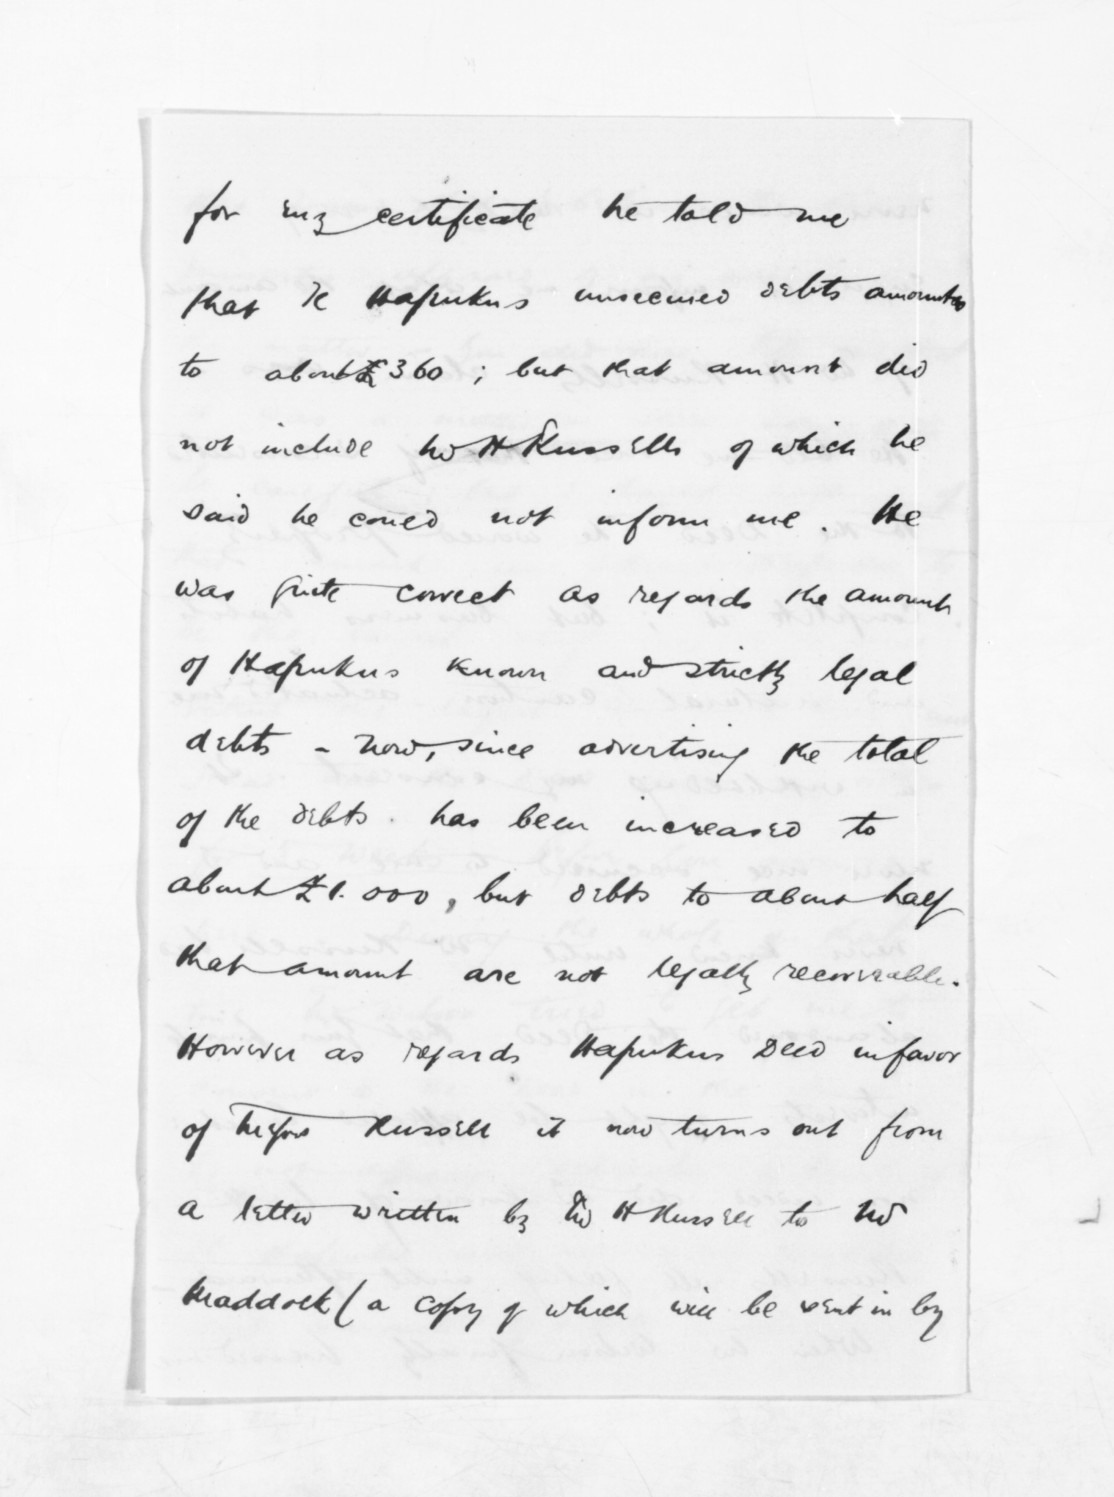 for my certificate he told me
that Te Hapukus unsecured debts amounted
to about £360 ; but that amount did
not include Mr H Russells of which he
said he could not inform me. He
was quite correct as regards the amount
of Hapukus known and strictly legal
debts - Now, since advertising the total
of the debts has been increased to
about £1.000, but debts to about half
that amount are not legally recoverable.
However as regards Hapukus Deed in favor
of Messrs Russell it now turns out from
a letter written by Mr H Russell to Mr
Maddock (a copy of which will be sent in by